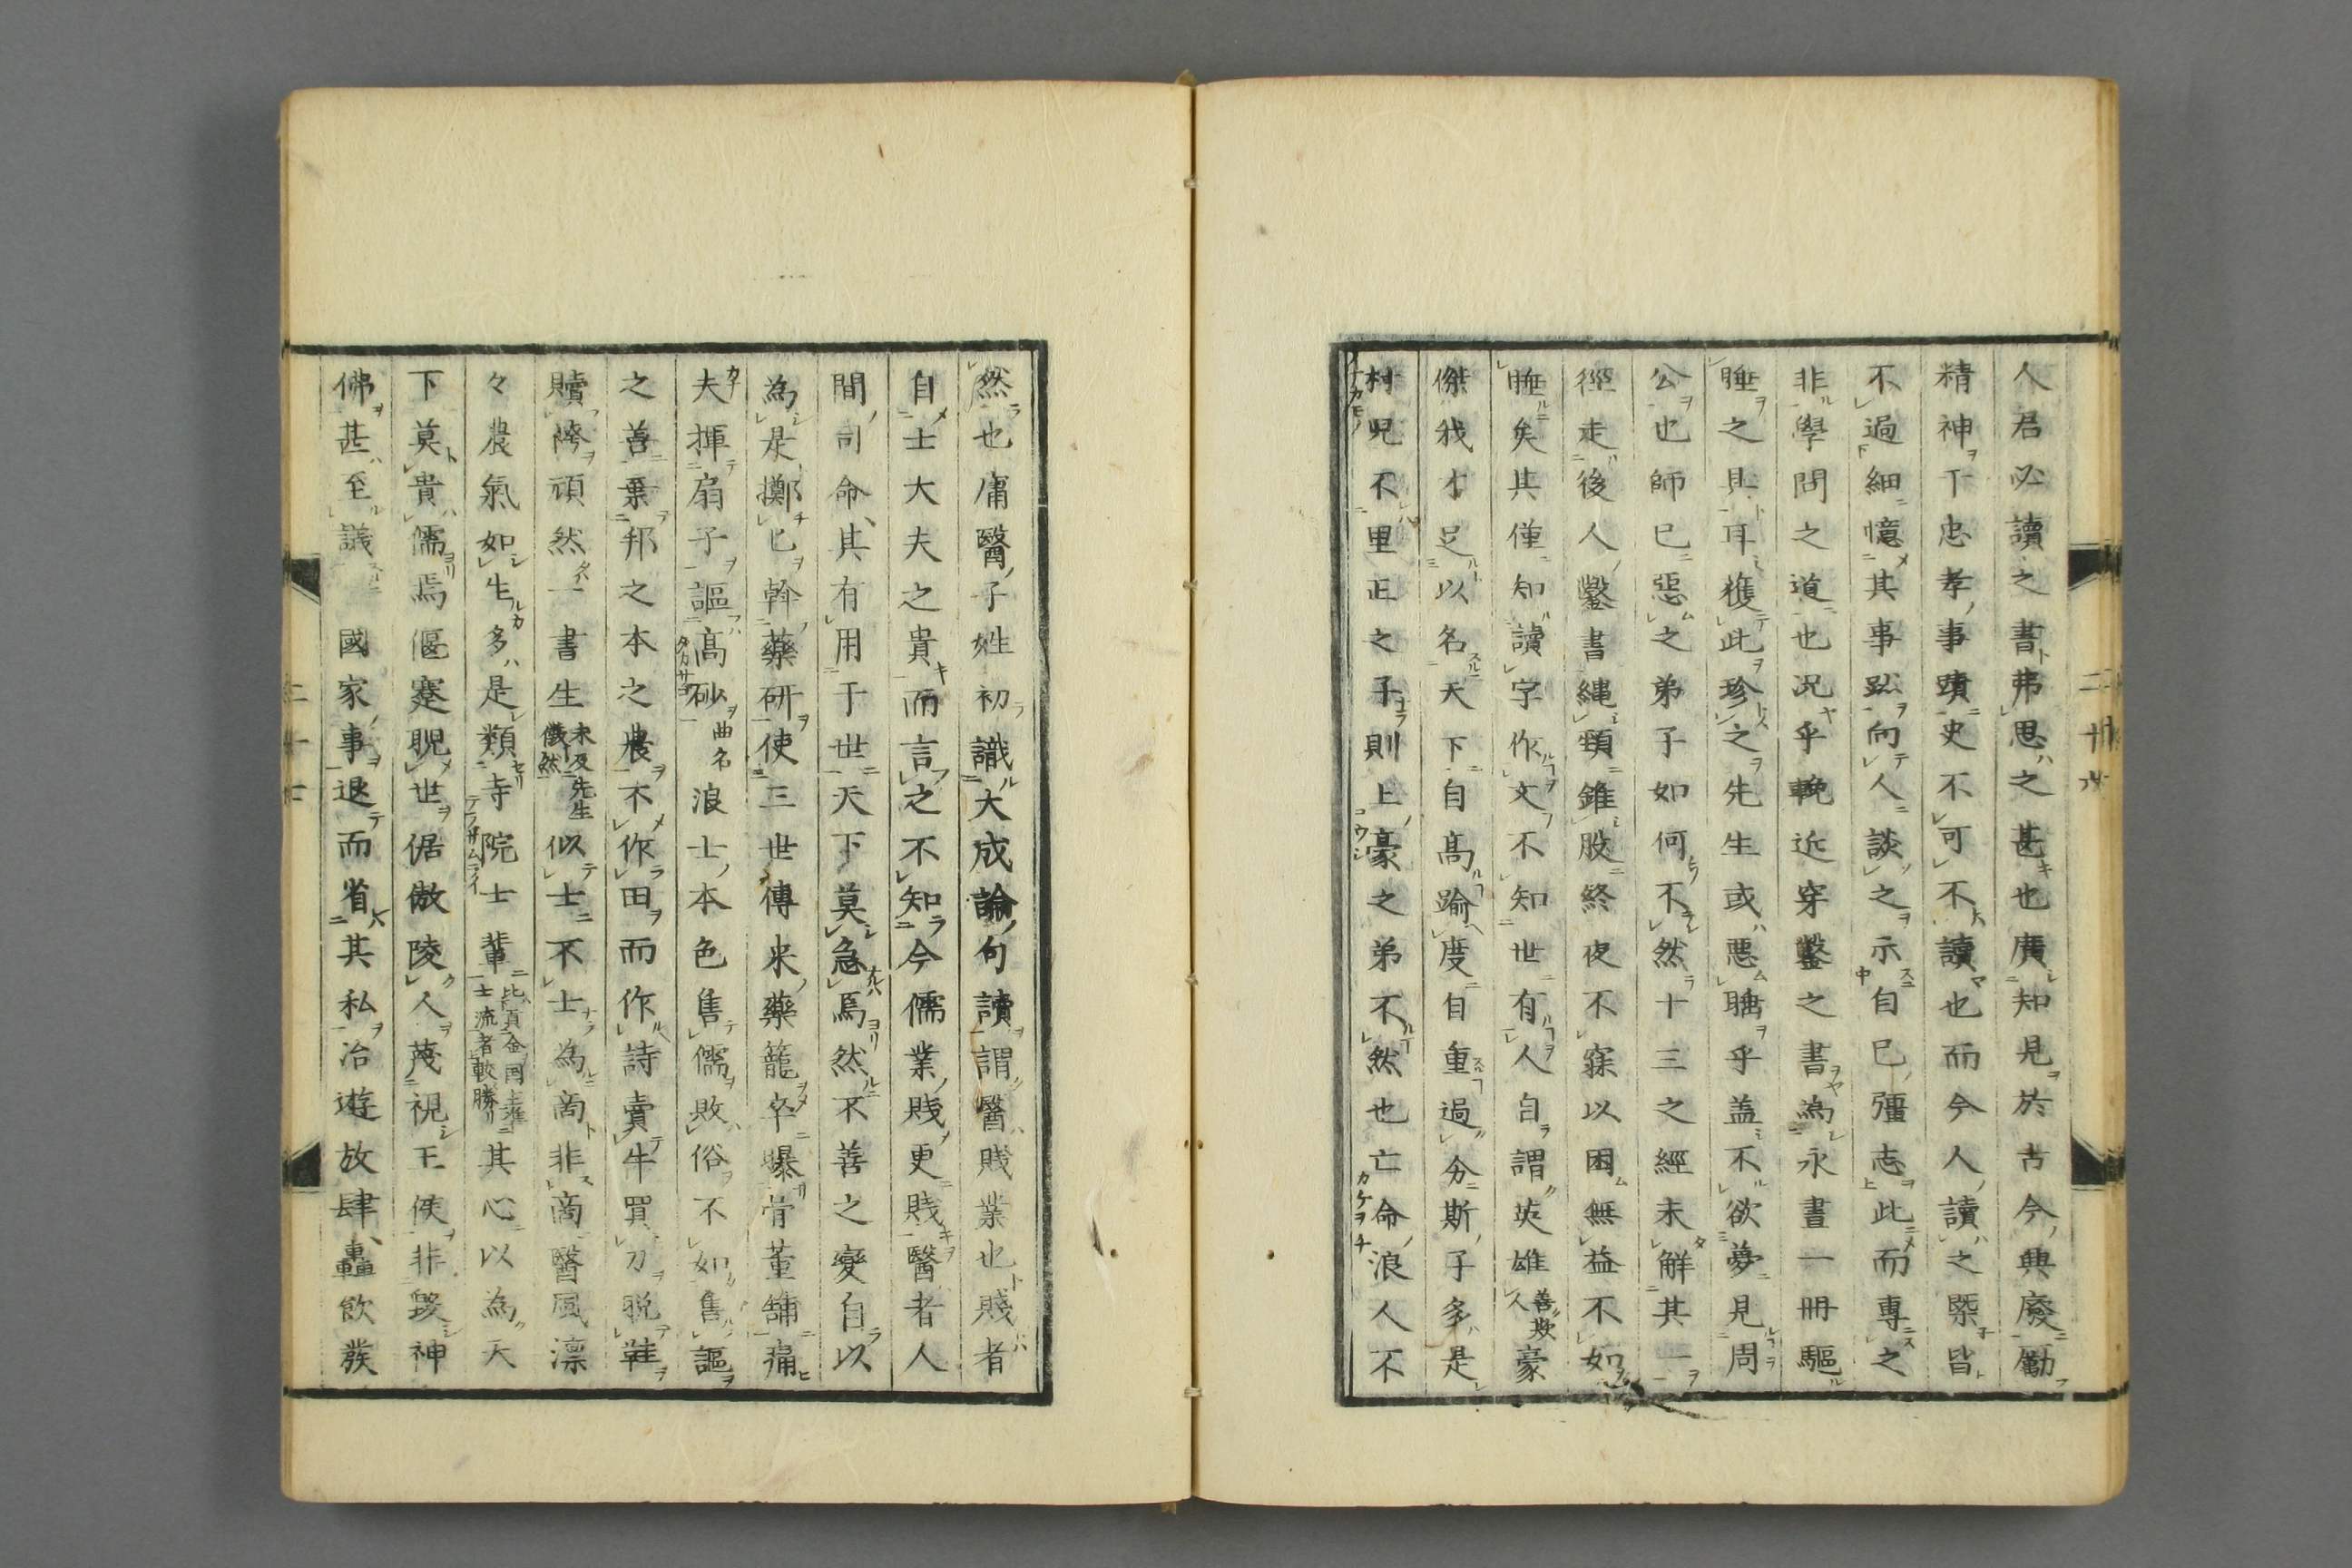 人君必讀之書弗思之甚也廣知見於古今興廢勵
精神于忠孝事蹟史不可不讀也而今人讀之槩皆
不過細憶其事跡向人談之示自己彊志此而專之
非學問之道也况乎輓近穿鑿之書為永晝一冊驅
睡之具耳獲此珍之先生或惡聴乎盖不欲夢見周
公也師已惡之弟子如何不然十三之經未解其一
徑走後人鑿書縄頸錐股終夜不寐以困無益不如
睡矣其僅知讀字作文不知世有人自謂英雄善欺人豪
傑我才足以名天下自高踰度自重過分斯子多是
村児不里正之子則上豪之弟不然也亡命浪人不
二十六
然也庸醫子姓初識大成論句讀謂醫賤業也賤者
自士大夫之貴而言之不知今儒業賤更賤醫者人
間司命其有用于世天下莫急焉然不善之變自以
為是擲匕斡藥研使三世傳来藥籠卒曝骨董舖痛
夫揮扇子謳髙砂曲名浪士本色售儒敗俗不如售謳
之善棄邦之本之農不作田而作詩賣牛買刀脱鞋
贖袴頑然一書生未及先生儀然似士不士為商非商醫風凛
々農氣如生多是類寺院士輩比頁金同士流者較勝其心以為天
下莫貴儒焉偃蹇睨世倨傲陵人蔑視王侯非毀神
佛甚至議國家事退而省其私冶遊放肆轟飲發
二十七